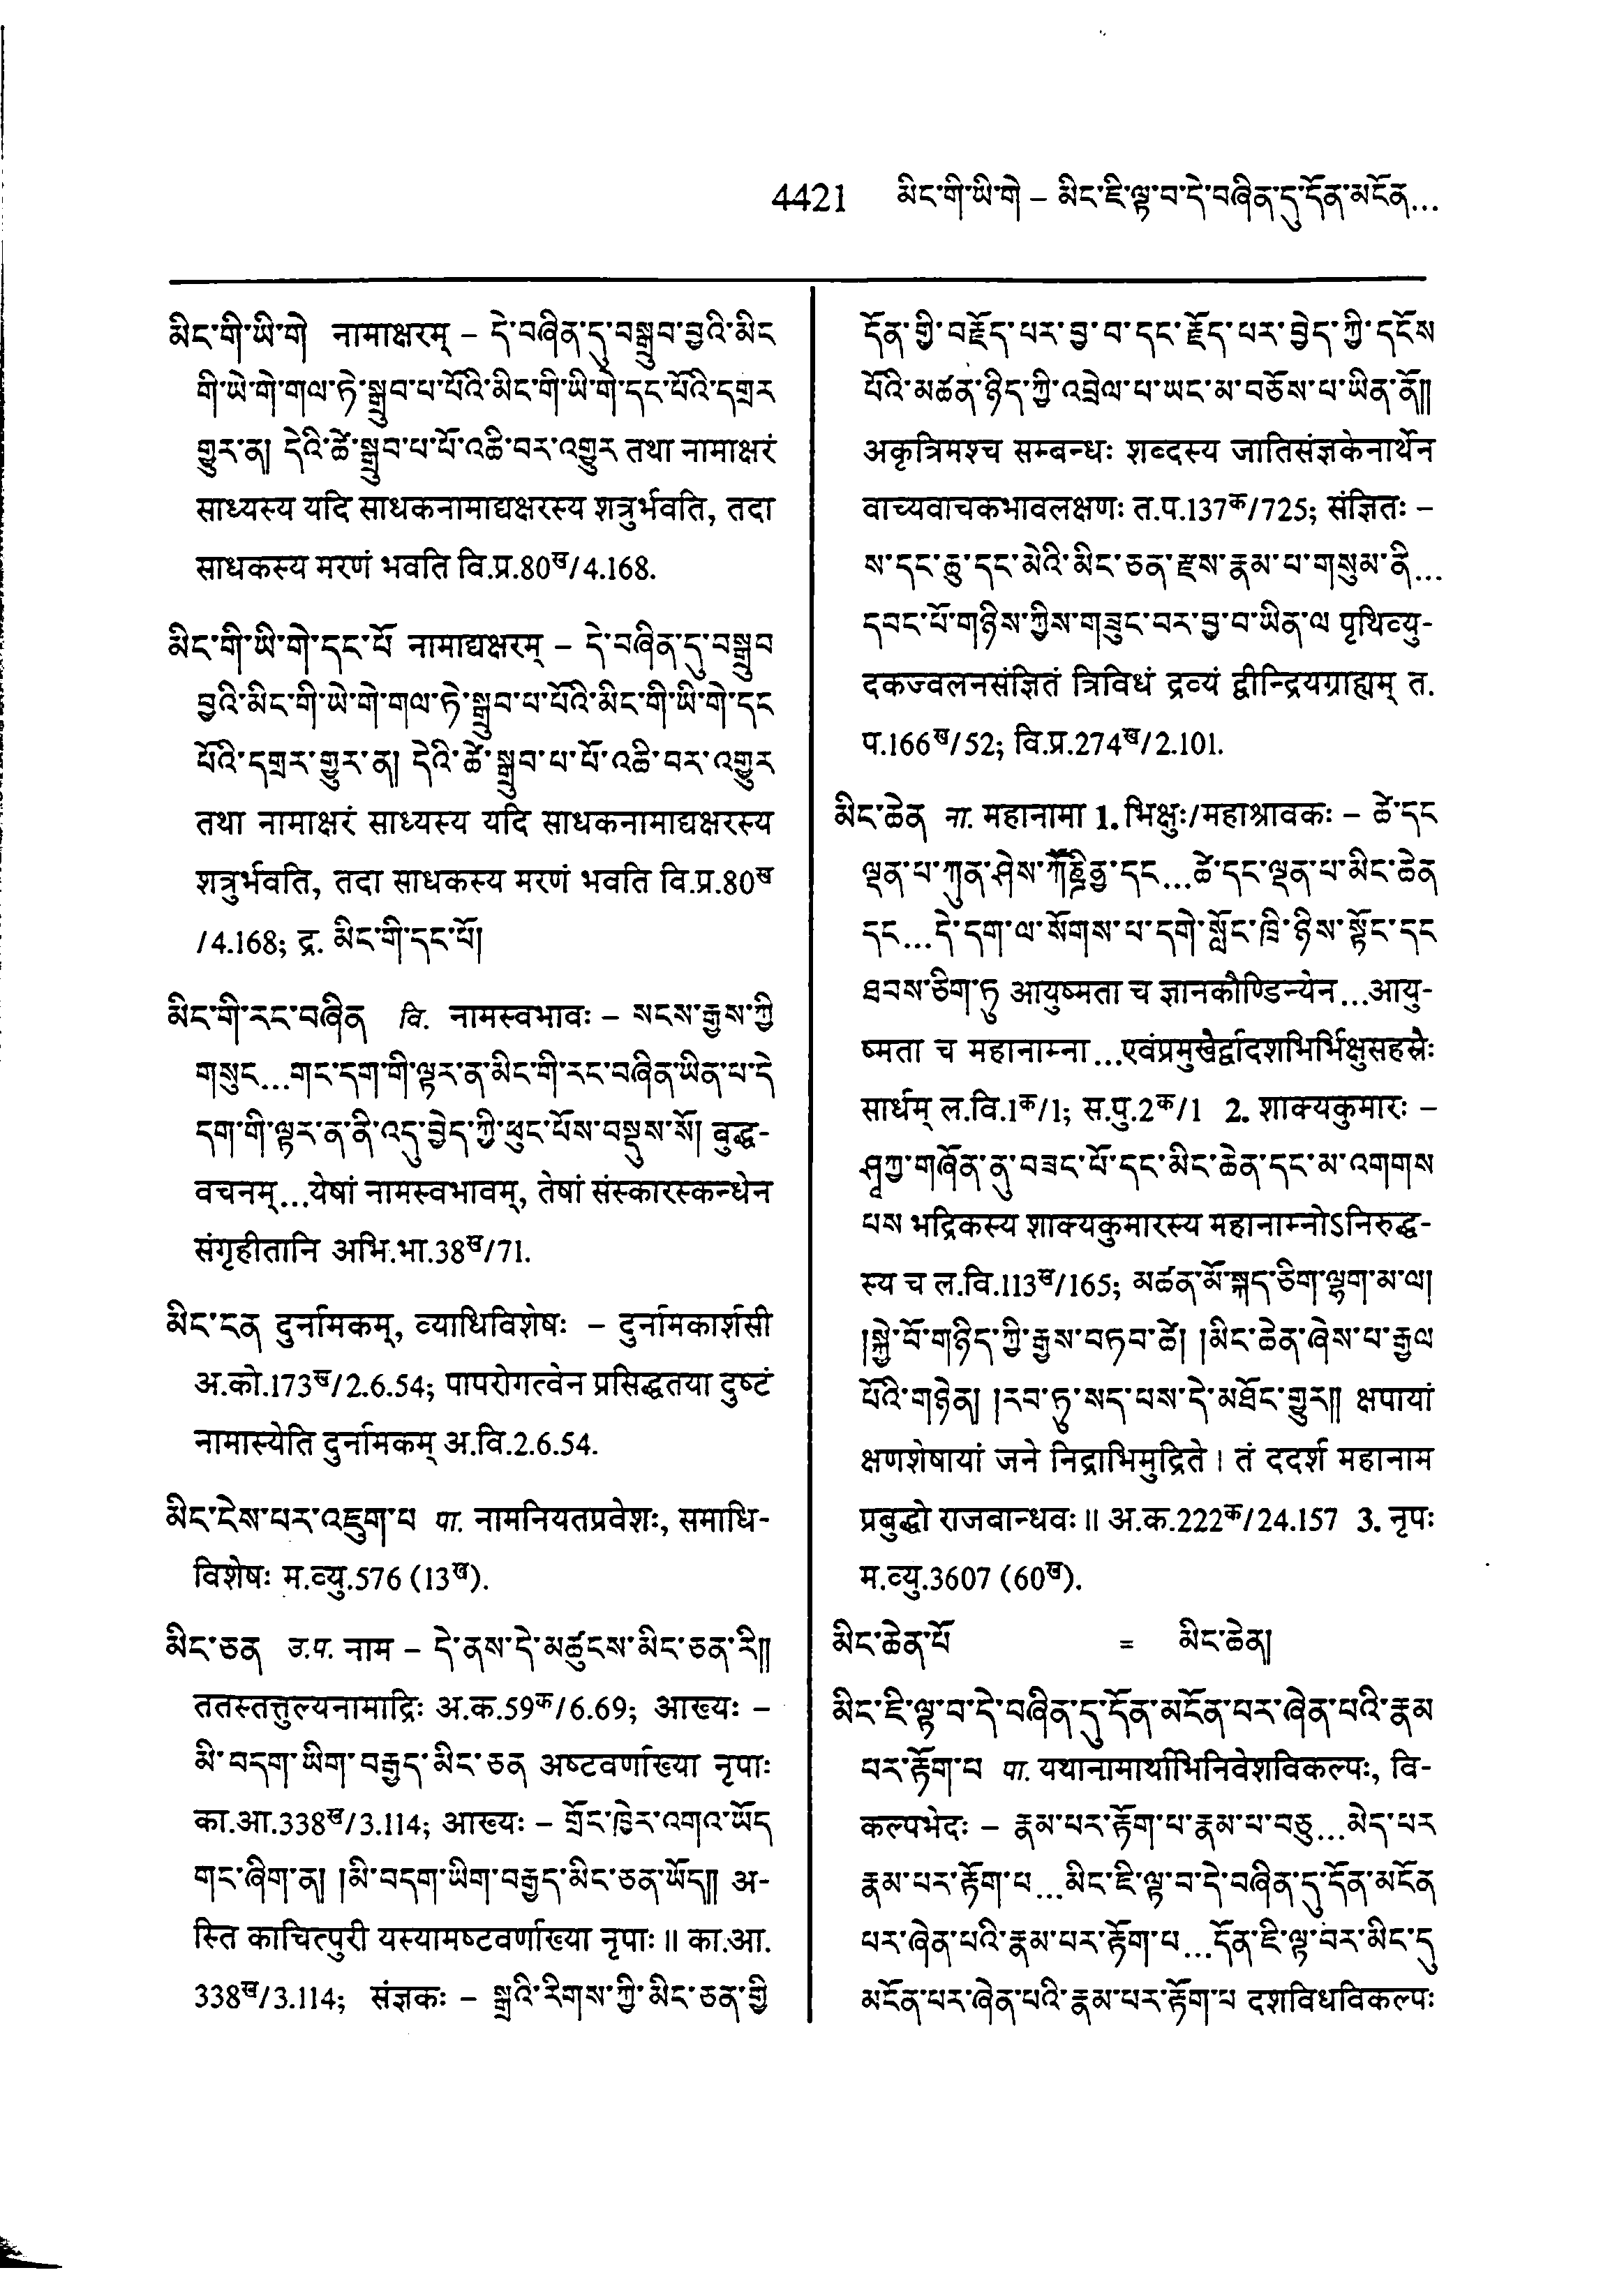 4421 མིང་གི་ཡི་གེ – མིང་ཇི་ལྟ་བ་དེ་བཞིན་དུ་དོན་མངོན...
མིང་གི་ཡི་གེ नामाक्षरम् – དེ་བཞིན་དུ་བསྒྲུབ་བྱའི་མིང
གི་ཡེ་གེ་གལ་ཏེ་སྒྲུབ་པ་པོའི་མིང་གི་ཡི་གེ་དང་པོའི་དགྲར
གྱུར་ན། དེའི་ཚེ་སྒྲུབ་པ་པོ་འཆི་བར་འགྱུར तथा नामाक्षरं
साध्यस्य यदि साधकनामाद्यक्षरस्य शत्रुर्भवति, तदा
साधकस्य मरणं भवति वि.प्र.80ख/4.168.
མིང་གི་ཡི་གེ་དང་པོ नामाद्यक्षरम् – དེ་བཞིན་དུ་བསྒྲུབ
བྱའི་མིང་གི་ཡེ་གེ་གལ་ཏེ་སྒྲུབ་པ་པོའི་མིང་གི་ཡི་གེ་དང
པོའི་དགྲར་གྱུར་ན། དེའི་ཚེ་སྒྲུབ་པ་པོ་འཆི་བར་འགྱུར
तथा नामाक्षरं साध्यस्य यदि साधकनामाद्यक्षरस्य
शत्रुर्भवति, तदा साधकस्य मरणं भवति वि.प्र.80ख
/4.168; द्र. མིང་གི་དང་པོ།
མིང་གི་རང་བཞིན वि. नामस्वभावः – སངས་རྒྱས་ཀྱི
གསུང...གང་དག་གི་ལྟར་ན་མིང་གི་རང་བཞིན་ཡིན་པ་དེ
དག་གི་ལྟར་ན་ནི་འདུ་བྱེད་ཀྱི་ཕུང་པོས་བསྡུས་སོ། बुद्ध-
वचनम्...येषां नामस्वभावम्, तेषां संस्कारस्कन्धेन
संगृहीतानि अभि.भा.38ख/71.
མིང་ངན दुर्नामकम्, व्याधिविशेषः – दुर्नामकार्शसी
अ.को.173ख/2.6.54; पापरोगत्वेन प्रसिद्धतया दुष्टं
नामास्येति दुर्नामकम् अ.वि.2.6.54.
མིང་ངེས་པར་འཇུག་པ पा. नामनियतप्रवेशः, समाधि-
विशेषः म.व्यु.576 (13ख).
མིང་ཅན उ.प. नाम – དེ་ནས་དེ་མཚུངས་མིང་ཅན་རི༎
ततस्तत्तुल्यनामाद्रिः अ.क.59क/6.69; आख्यः –
མི་བདག་ཡིག་བརྒྱད་མིང་ཅན अष्टवर्णाख्या नृपाः
का.आ.338ख/3.114; आख्यः – གྲོང་ཁྱེར་འགའ་ཡོད
གང་ཞིག་ན། །མི་བདག་ཡིག་བརྒྱད་མིང་ཅན་ཡོད༎ अ-
स्ति काचित्पुरी यस्यामष्टवर्णाख्या नृपाः॥ का.आ.
338ख/3.114; संज्ञकः – སྒྲའི་རིགས་ཀྱི་མིང་ཅན་གྱི
དོན་གྱི་བརྗོད་པར་བྱ་བ་དང་རྗོད་པར་བྱེད་ཀྱི་དངོས
པོའི་མཚན་ཉིད་ཀྱི་འབྲེལ་པ་ཡང་མ་བཅོས་པ་ཡིན་ནོ༎
अकृत्रिमश्च सम्बन्धः शब्दस्य जातिसंज्ञकेनार्थेन
वाच्यवाचकभावलक्षणः त.प.137क/725; संज्ञितः –
ས་དང་ཆུ་དང་མེའི་མིང་ཅན་རྫས་རྣམ་པ་གསུམ་ནི...
དབང་པོ་གཉིས་ཀྱིས་གཟུང་བར་བྱ་བ་ཡིན་ལ पृथिव्यु-
दकज्वलनसंज्ञितं त्रिविधं द्रव्यं द्वीन्द्रियग्राह्यम् त.
प.166ख/52; वि.प्र.274ख/2.101.
མིང་ཆེན ना. महानामा 1. भिक्षुः/महाश्रावकः – ཚེ་དང
ལྡན་པ་ཀུན་ཤེས་ཀཽཎྜིནྱ་དང...ཚེ་དང་ལྡན་པ་མིང་ཆེན
དང...དེ་དག་ལ་སོགས་པ་དགེ་སློང་ཁྲི་ཉིས་སྟོང་དང
ཐབས་ཅིག་ཏུ आयुष्मता च ज्ञानकौण्डिन्येन...आयु-
ष्मता च महानाम्ना...एवंप्रमुखैर्द्वादशभिर्भिक्षुसहस्रैः
सार्धम् ल.वि.1क/1; स.पु.2क/1 2. शाक्यकुमारः –
ཤཱཀྱ་གཞོན་ནུ་བཟང་པོ་དང་མིང་ཆེན་དང་མ་འགགས
པས भद्रिकस्य शाक्यकुमारस्य महानाम्नोऽनिरुद्ध-
स्य च ल.वि.113ख/165; མཚན་མོ་སྐད་ཅིག་ལྷག་མ་ལ།
།སྐྱེ་བོ་གཉིད་ཀྱི་རྒྱས་བཏབ་ཚེ། །མིང་ཆེན་ཞེས་པ་རྒྱལ
པོའི་གཉེན། །རབ་ཏུ་སད་པས་དེ་མཐོང་གྱུར༎ क्षपायां
क्षणशेषायां जने निद्राभिमुद्रिते। तं ददर्श महानाम
प्रबुद्धो राजबान्धवः॥ अ.क.222क/24.157 3. नृपः
म.व्यु.3607 (60ख).
མིང་ཆེན་པོ = མིང་ཆེན།
མིང་ཇི་ལྟ་བ་དེ་བཞིན་དུ་དོན་མངོན་པར་ཞེན་པའི་རྣམ
པར་རྟོག་པ पा. यथानामार्थाभिनिवेशविकल्पः, वि-
कल्पभेदः – རྣམ་པར་རྟོག་པ་རྣམ་པ་བཅུ...མེད་པར
རྣམ་པར་རྟོག་པ...མིང་ཇི་ལྟ་བ་དེ་བཞིན་དུ་དོན་མངོན
པར་ཞེན་པའི་རྣམ་པར་རྟོག་པ...དོན་ཇི་ལྟ་བར་མིང་དུ
མངོན་པར་ཞེན་པའི་རྣམ་པར་རྟོག་པ दशविधविकल्पः